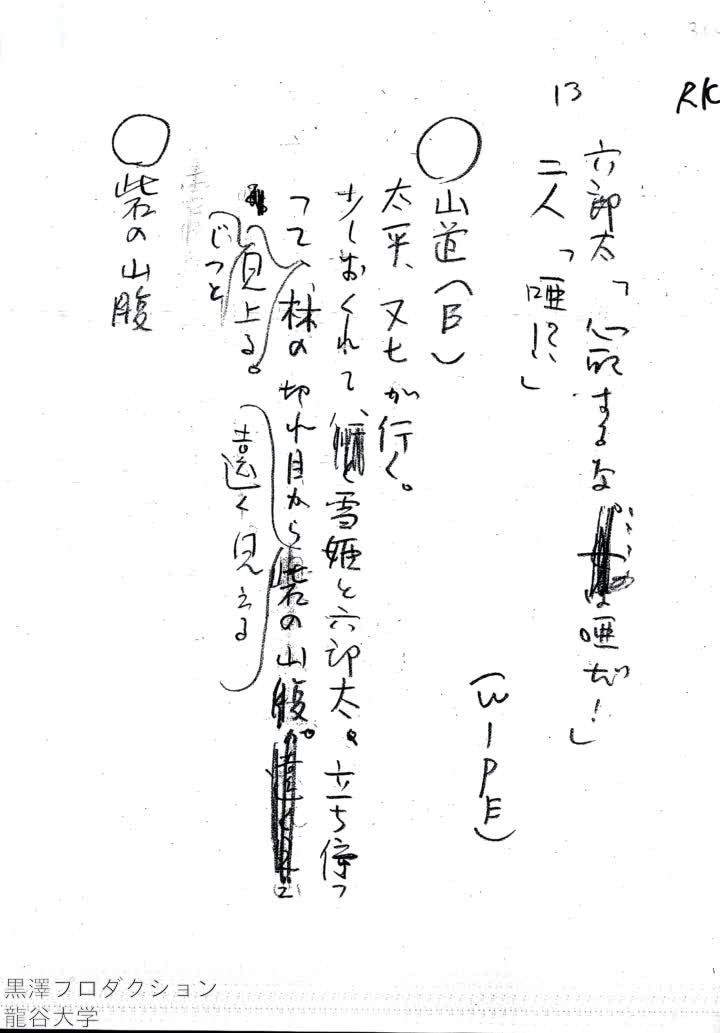 RK
13
六郎太「心配するな は唖だ!」
二人「唖!?」
(WIPE)
○山道(B)
太平、又七が行く。
少しおくれて、雪姫と六郎太。立ち停っ
って、林の切れ目から砦の山腹が
遠く見える
じっと
見上る。
○砦の山腹
黒澤プロダクション
龍谷大学